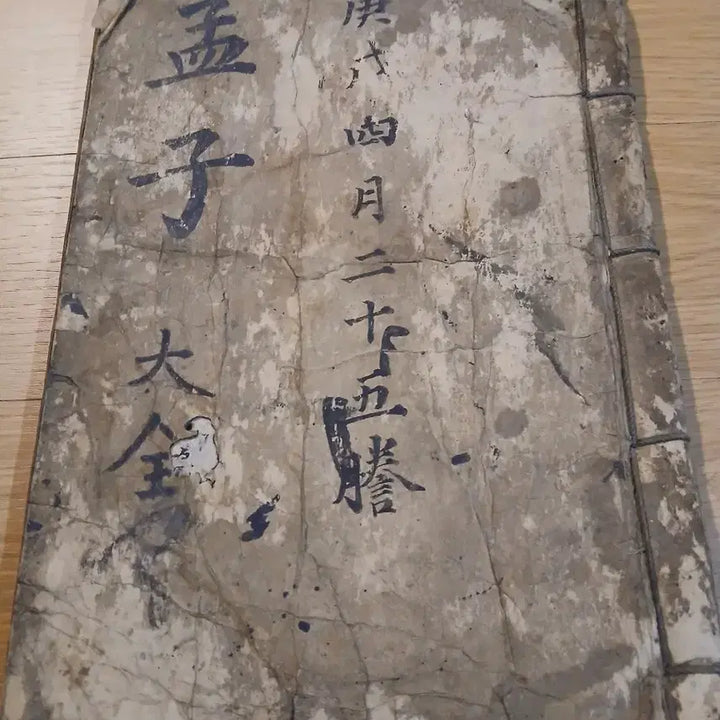 庚戌四月二十五謄
孟子
大全